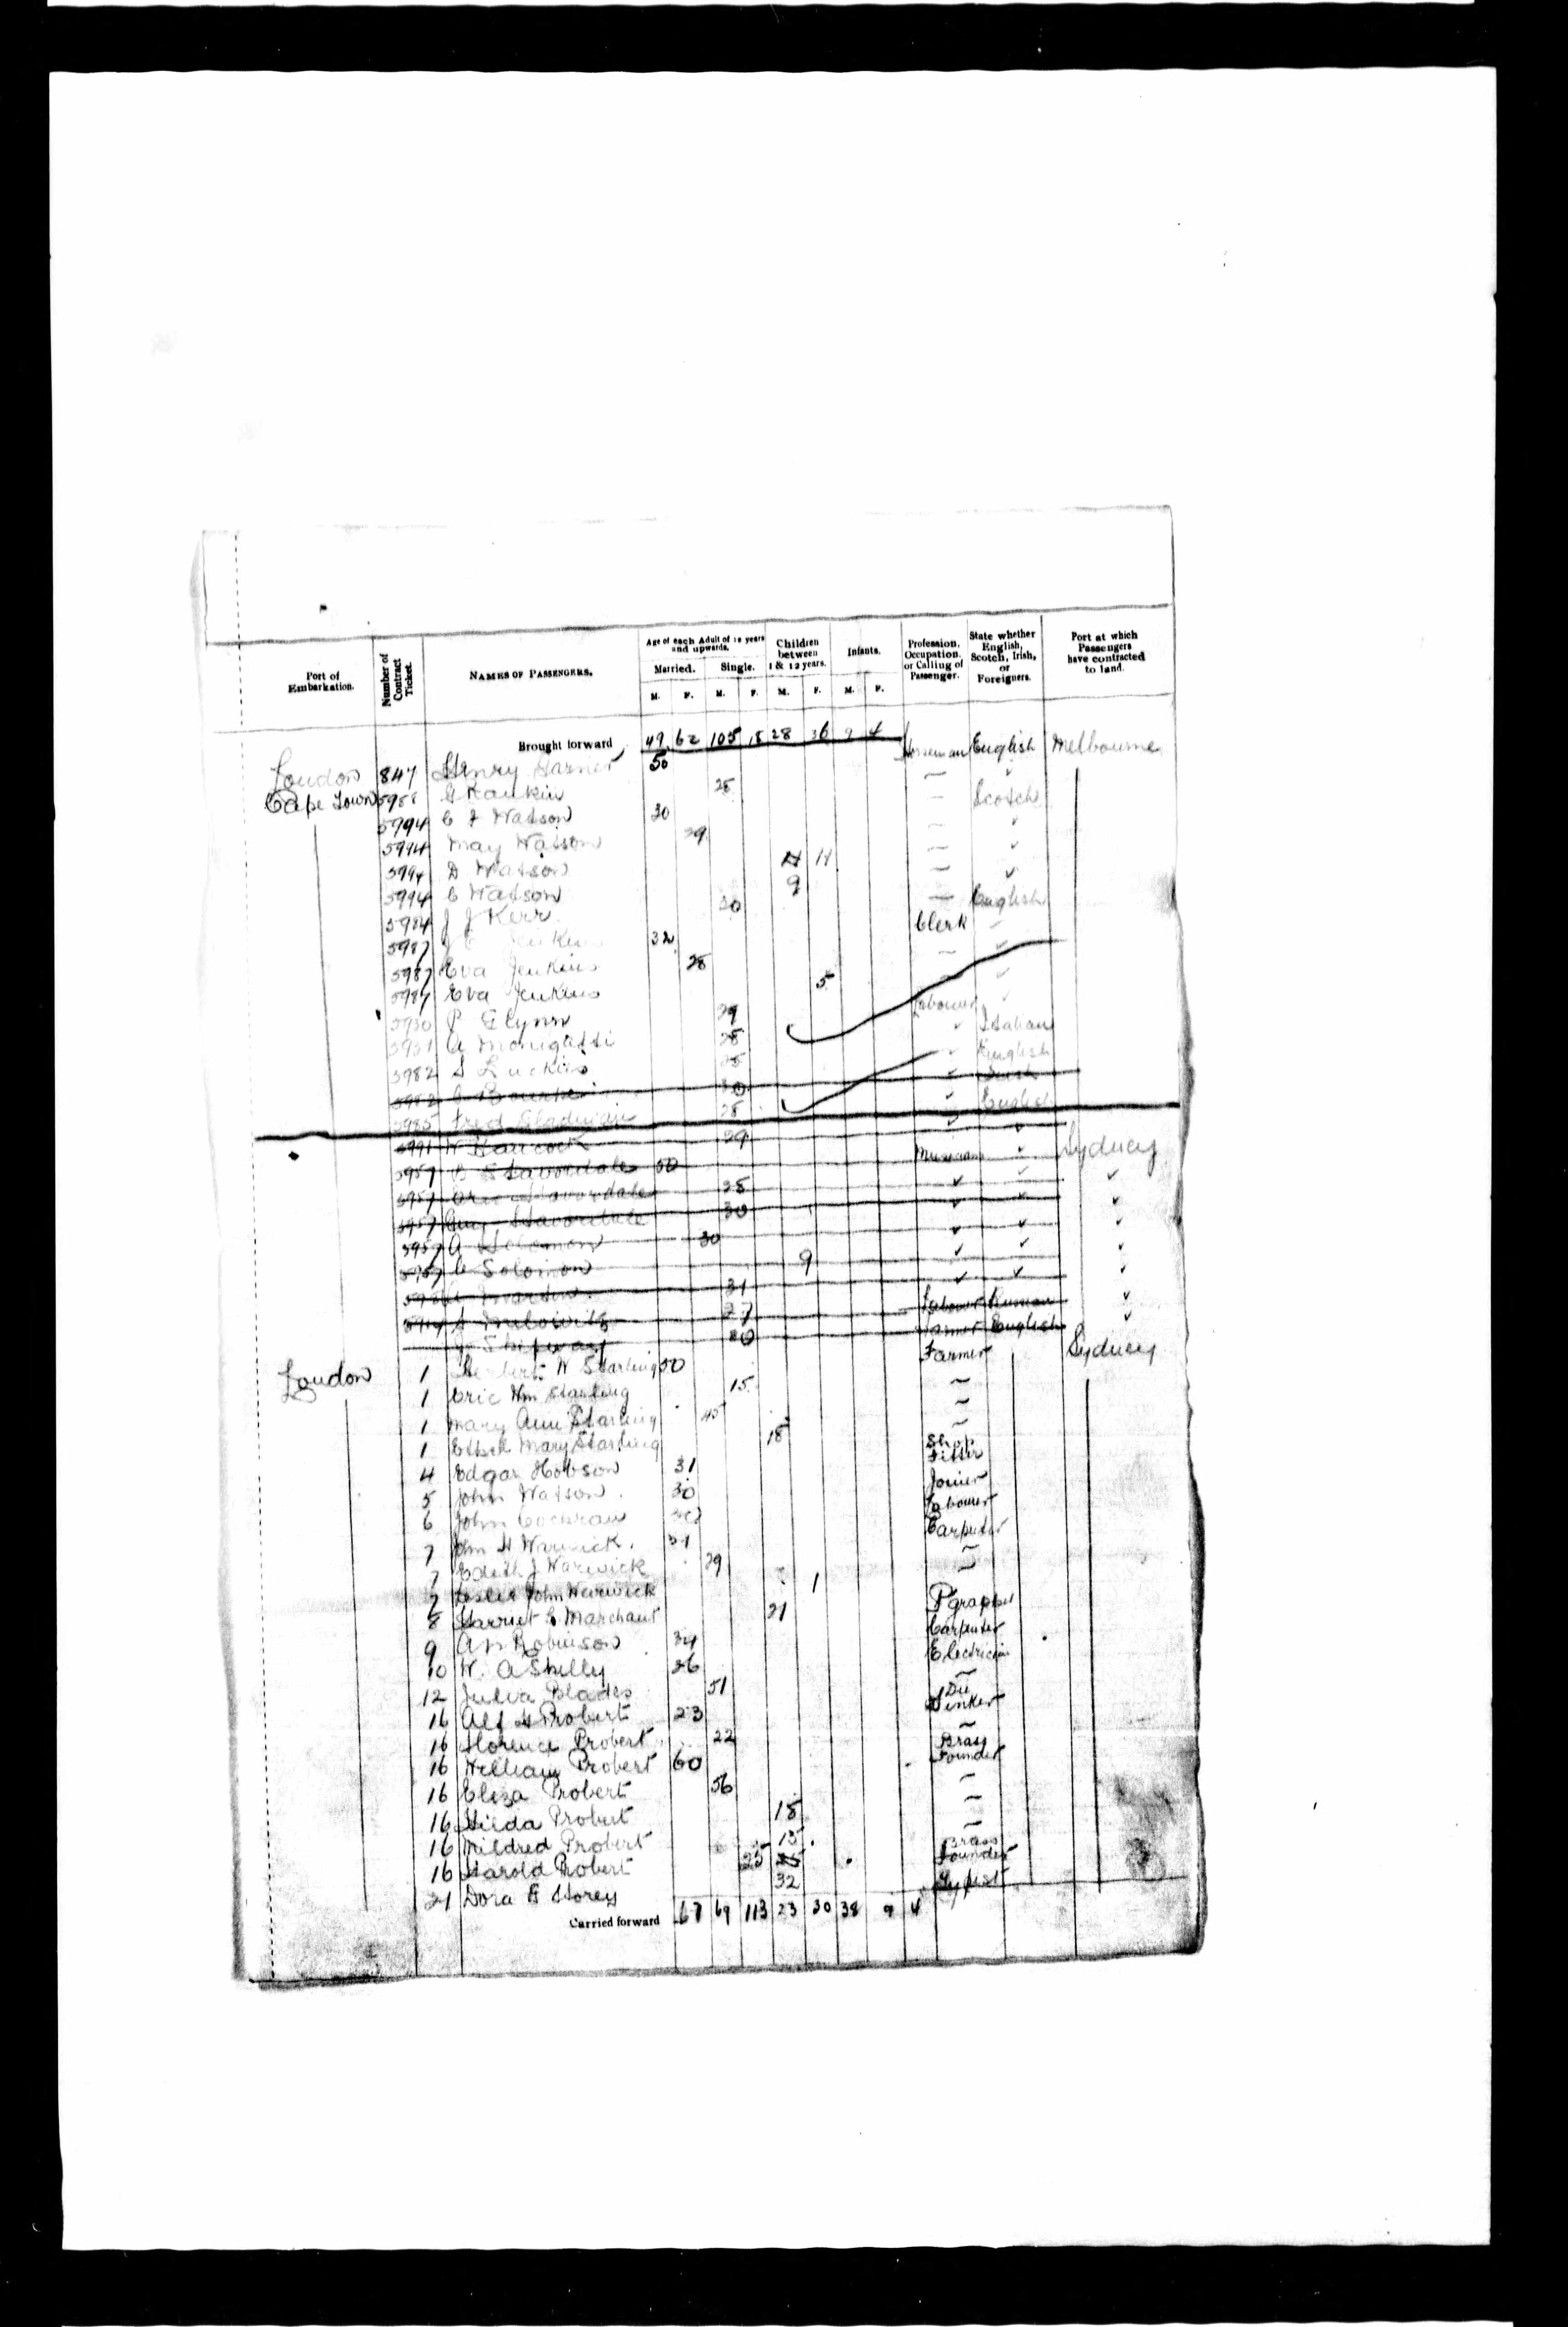 Port of Embarkation. Number of Contract Ticket. NAMES OF PASSENGERS. Age of each Adult of 12 years and upwards. Married. M. F. Single. M. F. Children between 1 & 12 years. M. F. Infants. M. F. Profession, Occupation, or Calling of Passenger. State whether English, Scotch, Irish, or Foreigners. Port at which Passengers have contracted to land.
Brought forward 49 62 105 18 28 36 9 4
London 847 Henry 50 English Melbourne
Cape Town 5958 G Rankin 28 Scotch
5994 C J Watson 30
5994 May Watson 29
5994 D Watson 11
5994 C Watson 9
5984 J J Kerr 30 English
5987 J Jenkins 32 Clerk
5987 Eva Jenkins 28
5987 Eva Jenkins 5
5930 P Glynn 29 Labourer
5931 A 28 Italian
5982 S Luckins 28 English
Bourke 30 Irish
5985 Fred 28 English
5991 W Hancock 29
5957 Stavordale 50 Musician Sydney
5957 Stavordale 28
5957 Stavordale 30
5957 A Solomon 30
5957 C Solomon 9
Martin 31
27 Labourer Russian
Shipway 20 Farmer English
London 1 Herbert W Starling 50 Farmer Sydney
1 Eric Wm Starling 15
1 Mary Ann Starling 45
1 Ethel Mary Starling 18
4 Edgar Hobson 31 Shop Fitter
5 John Watson 30 Joiner
6 John Cochran Labourer
7 John H Warwick 31 Carpenter
7 Edith J Warwick 29
7 Leslie John Warwick 1
8 Harriet E Marchant 21 P'grapher
9 A N Robinson 34 Carpenter
10 W. A Skelly 26 Electrician
12 Julia Blades 51
16 Alf H Probert 23 Die Sinker
16 Florence Probert 22
16 William Probert 60 Brass Founder
16 Eliza Probert 56
16 Hilda Probert 18
16 Mildred Probert 15
16 Harold Probert 25 Brass Founder
21 Dora E Storey 32 Typist
Carried forward 67 69 113 23 30 38 9 4